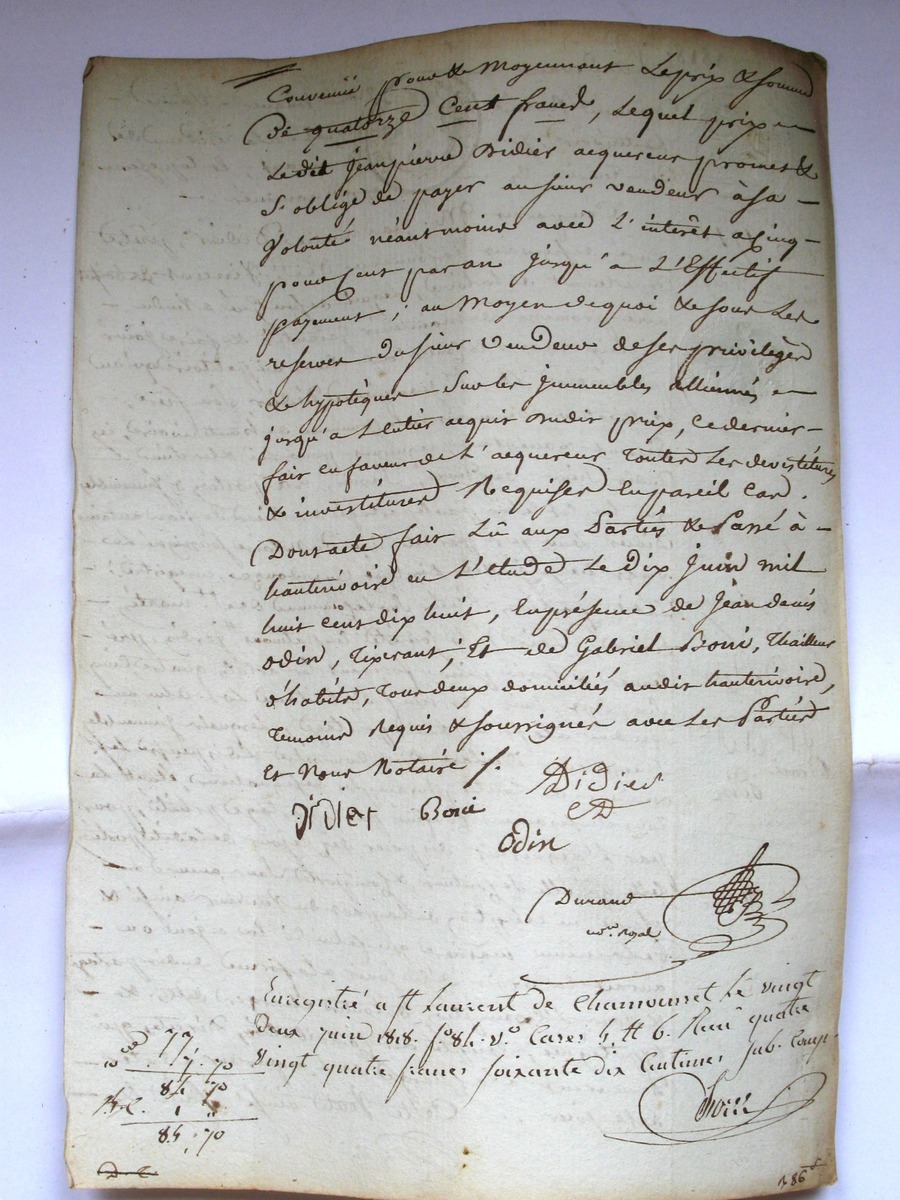 Convenue pour & Moyennant Le prix & somme
De quatorze Cent francs, Lequel prix
Ledit Jeanpierre Didier acquereur promet &
S'obligé de payer au sieur vendeur à sa
Volonté néantmoins avec L'intérêt a Cinq
pour Cent par an jusqu'a L'Effectif
payement ; au Moyen de quoi & sous Les
reserves du sieur Vendeur de ses privilèges
& hypotèques sur les immeubles alliennés
jusqu'a L'entier acquit dudit prix, Ce dernier
fait en faveur de L'acquereur Toutes Les devestitures
& investitures Requises En pareil Cas.
Dont acte fait Lû aux Parties & Passé à
hauterivoire en L'etude Le dix Juin mil
huit cent dix huit, En présence de Jean denis
odin, Tixerant, Et de Gabriel Boni, Thailleur
d'habits, Tous deux domiciliés audit hauterivoire,
Temoins Requis & soussignés avec Les Parties
Et Nous Notaire /.
Didier
Didier Boni
D
Odin
Durand
no.re royal
Enregistré a St Laurent de Chamousset Le vingt
deux juin 1818. fo. 84. vo. Cases 5 et 6. Recu quatre
vingt quatre francs soixante dix Centimes sub. Comp.
77
10me 7.70
84 70
1 "
84.70
186